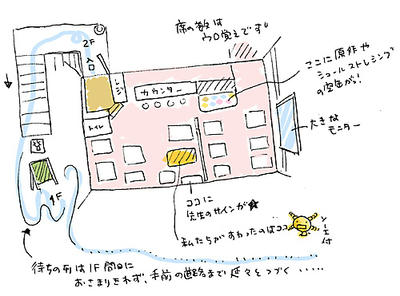 席の数は
ウロ覚えです
2F
入口
レジ
カウンター
トイレ
ここに原作や
シュールストレミング
の空缶が!
大きな
モニター
1F
ココに
先生のサインが★
私たちがすわったのはココ
待ちの列は1F階段に
おさまりきれず、手前の道路まで延々とつづく……